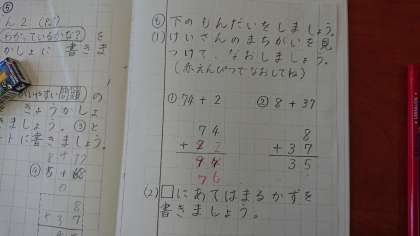 ⑤
んえ
わかっているかな? を
かしょに 書きま
いやすい問題)の
きょうかしょ
きましょう。③と
ートに書きましょう。
8+37
8
+37
⑥下のもんだいをしましょう。
(1)けいさんのまちがいを見
つけて、なおしましょう。
(赤えんぴつでなおしてね)
①74+2 ②8+37
74 8
+ 2 +37
94 35
76
(2)□にあてはまるかずを
書きましょう。